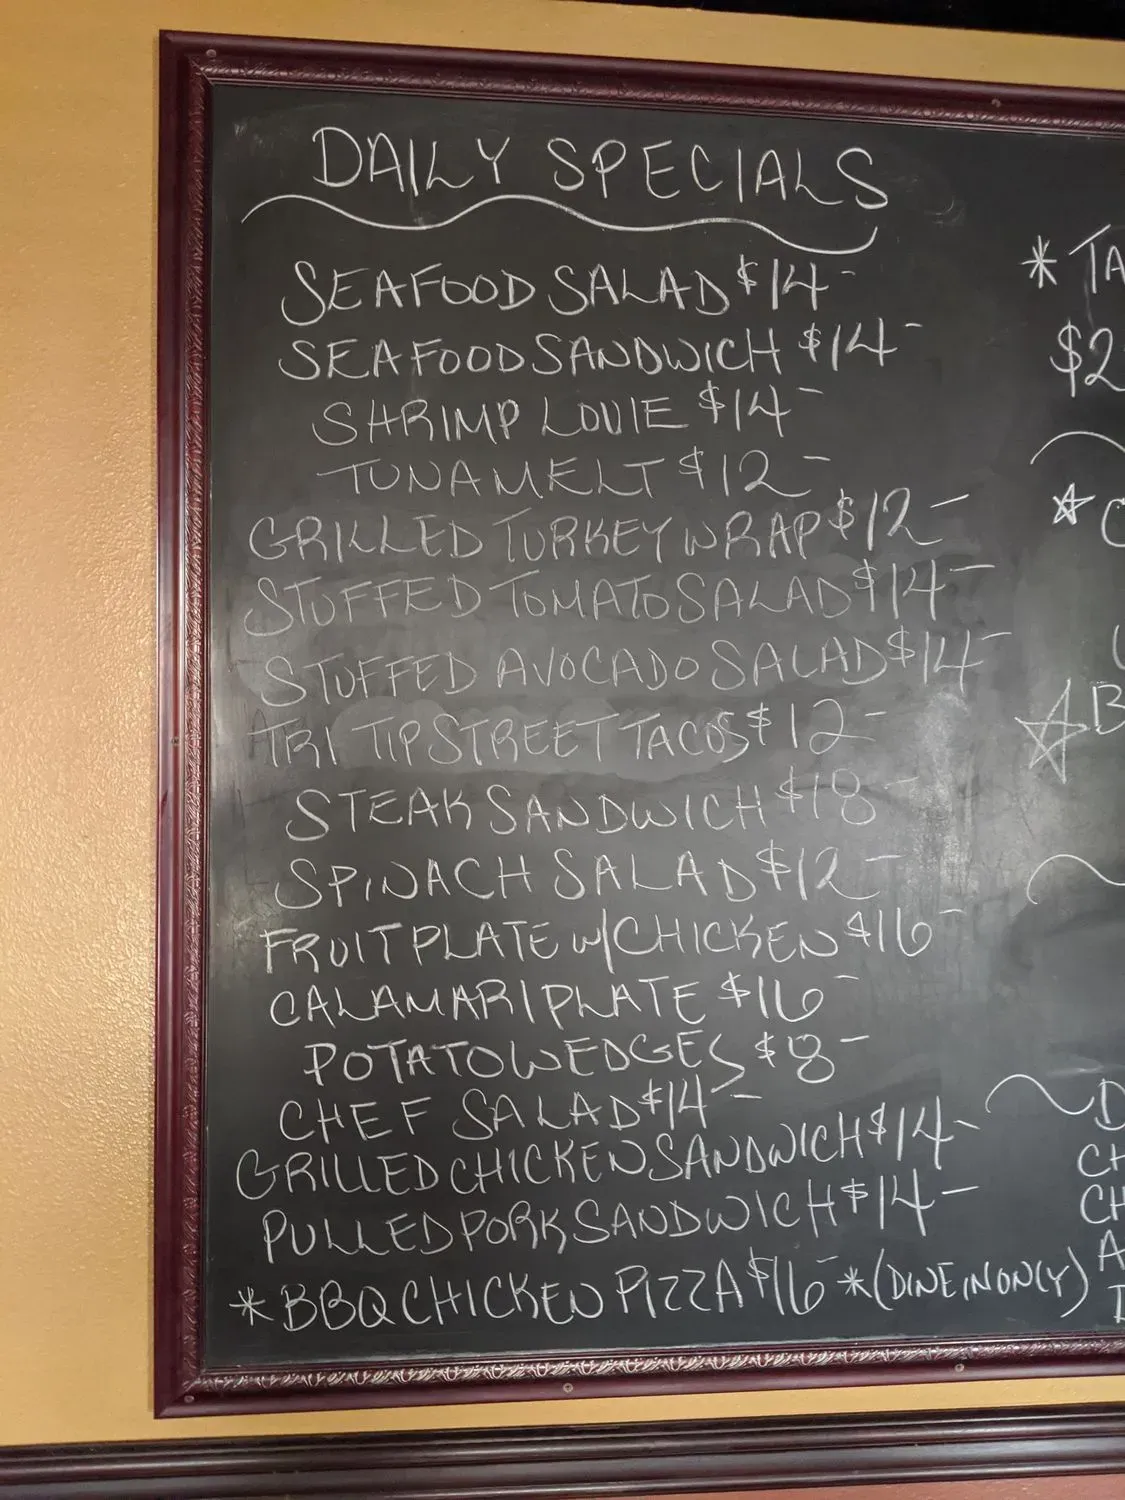 DAILY SPECIALS
SEAFOOD SALAD $14-
SEAFOOD SANDWICH $14-
SHRIMP LOUIE $14-
TUNA MELT $12-
GRILLED TURKEY WRAP $12-
STUFFED TOMATO SALAD $14-
STUFFED AVOCADO SALAD $14-
TRI TIP STREET TACOS $12-
STEAK SANDWICH $18-
SPINACH SALAD $12-
FRUIT PLATE w/CHICKEN $16-
CALAMARI PLATE $16-
POTATO WEDGES $8-
CHEF SALAD $14-
GRILLED CHICKEN SANDWICH $14-
PULLED PORK SANDWICH $14-
*BBQ CHICKEN PIZZA $16-*(DINE IN ONLY)
* TA
$2